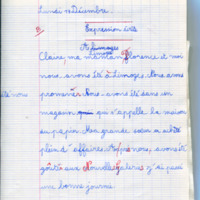 Lundi 14 Décembre.
Expression écrite
A Limoges
Claire, ma maman Florence et moi
nous, avons été à Limoges. Nous avons
promenés. Nous avons été dans un
magasin qui s'appelle la maison
en papier. Ma grande sœur a acheté
plein d'affaires. Après nous, avons été
goûter aux Nouvelles Galeries j'ai passé
une bonne journée.